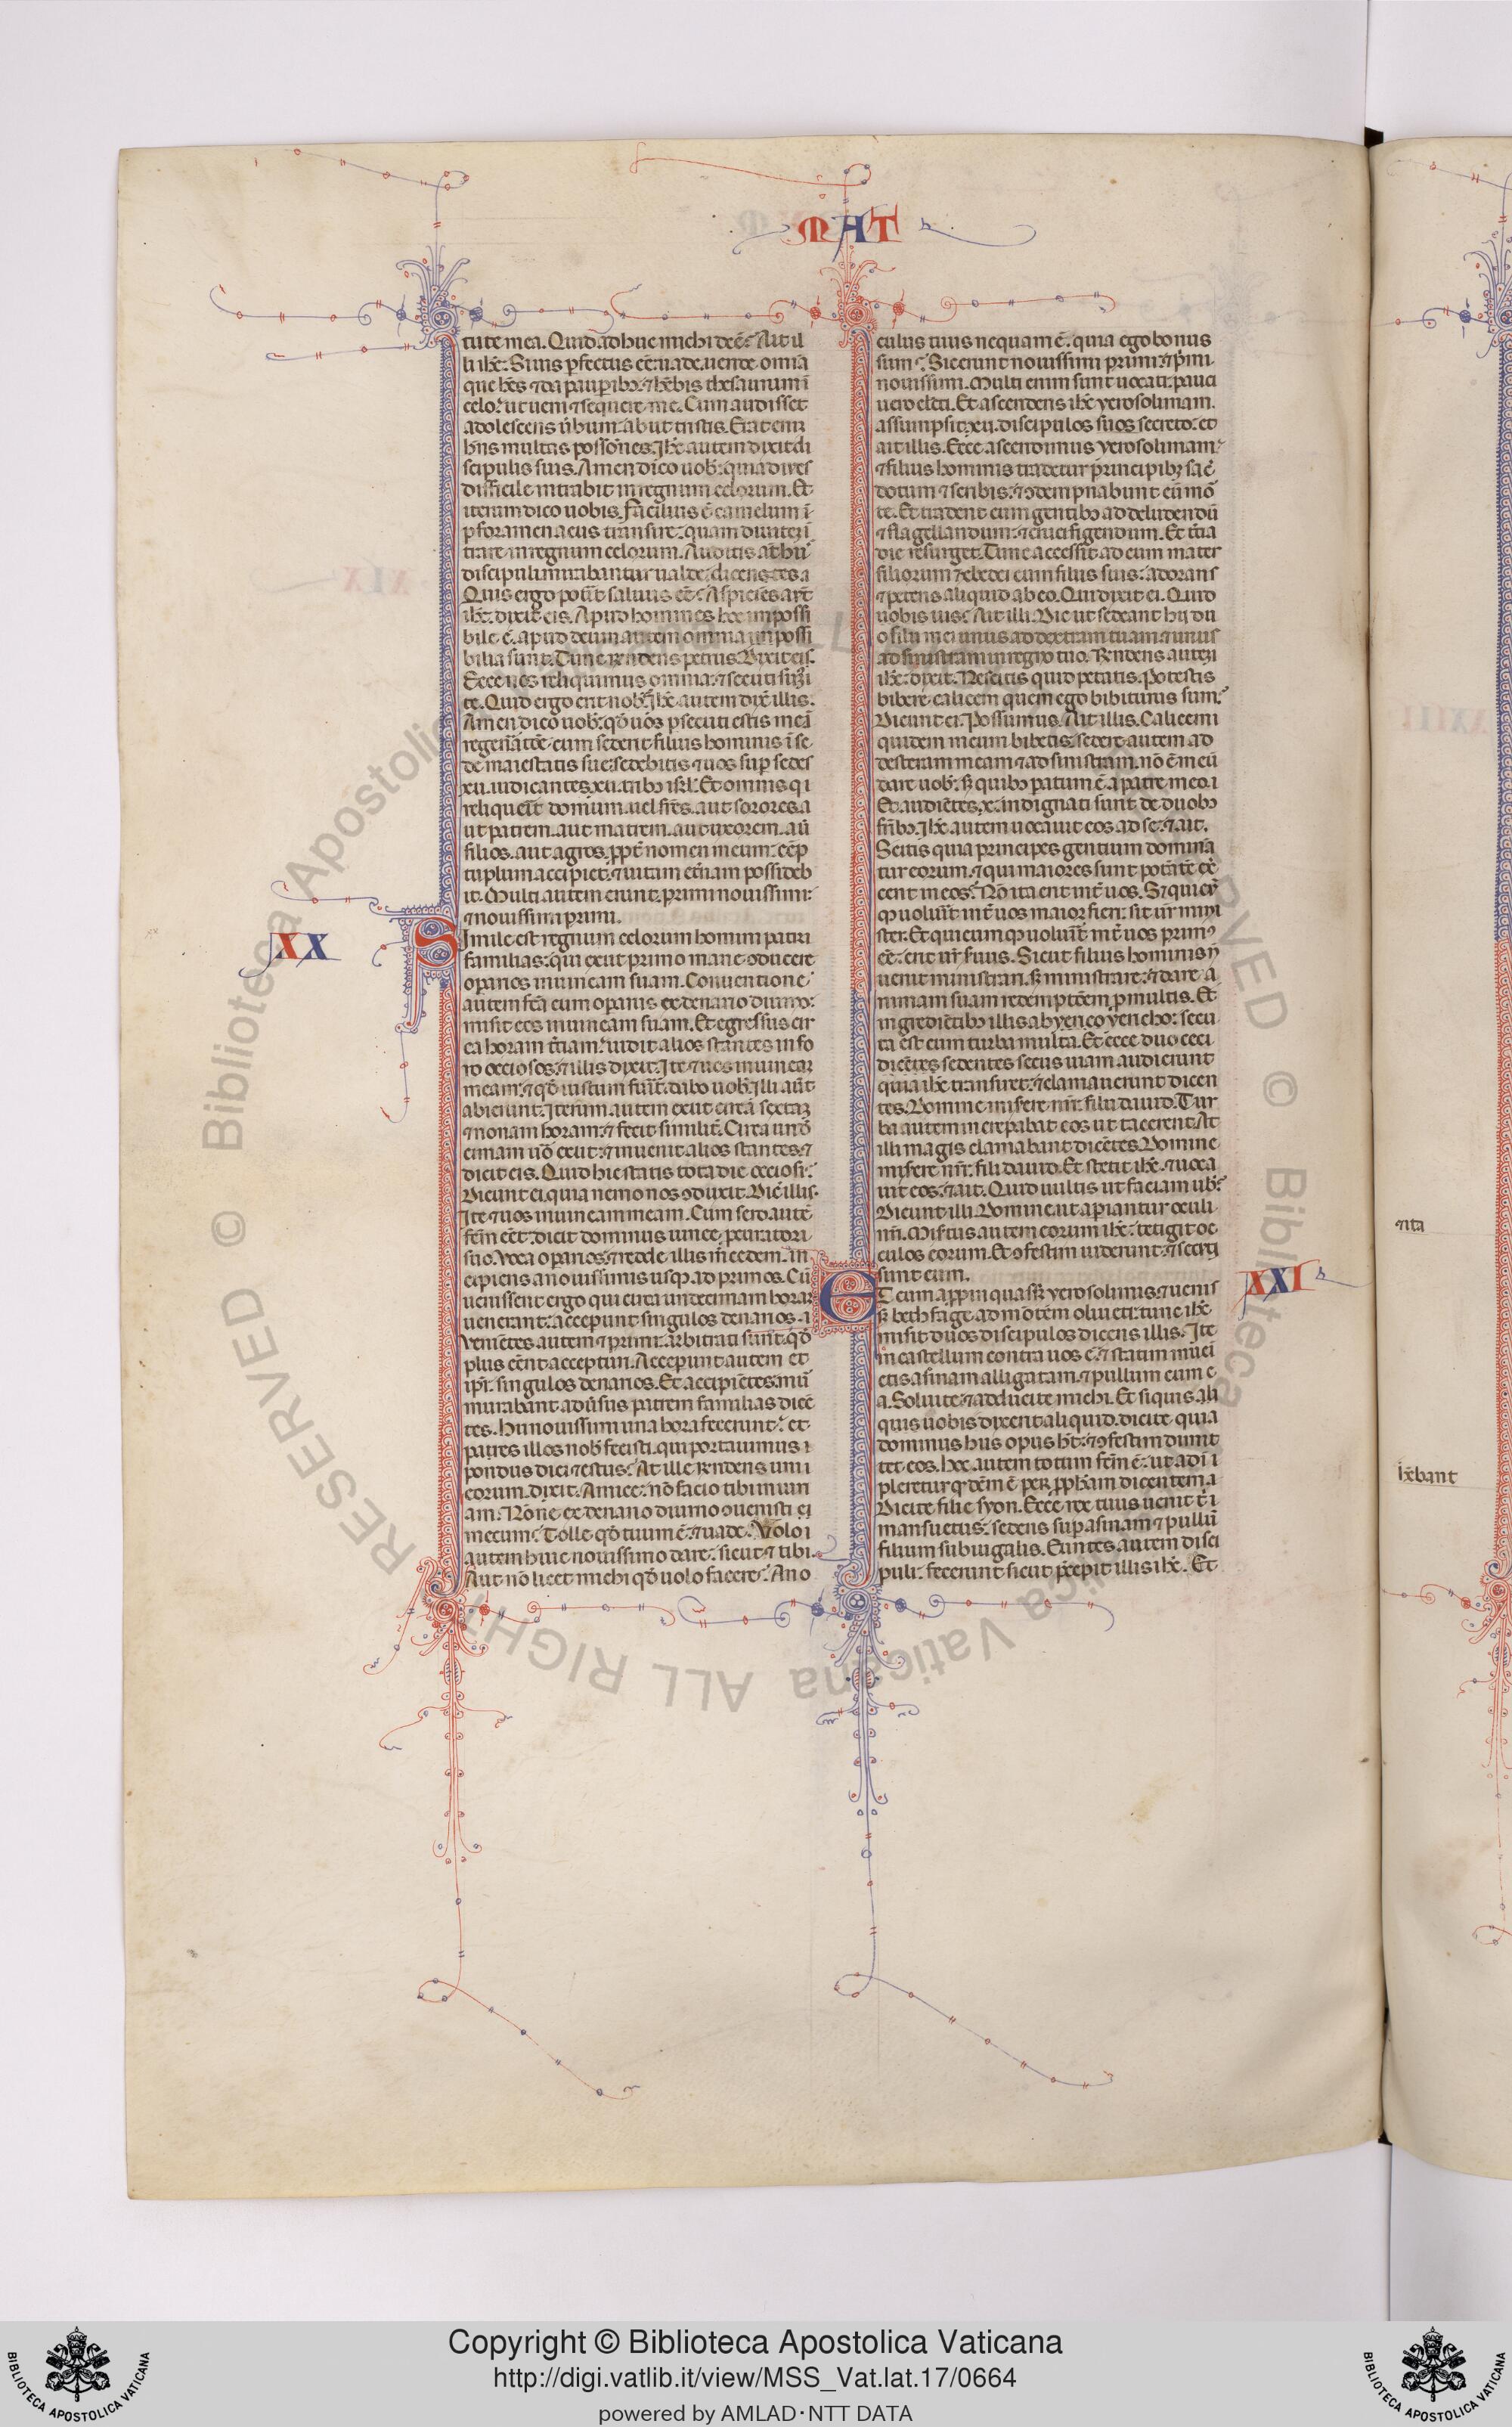 MAT
tute mea. Quid adhuc michi deē? Ait il
li ihc̄. Si uis p̄fectus eē: uade. uende omnia
que hēs ⁊ da paup̄ibꝫ. ⁊ hēbis thesaurum ī
celo. ut ueni ⁊ sequere me. Cum audisset
adolescens ūbum: abiit tristis. Erat enī
hn̄s multas possōnes. Ihc̄ autem dixit di
scipulis suis. Amen dico uob̄: quia diues
difficile intrabit in regnum celorum. Et
iterum dico uobis. facilius ē camelum ī
p̄ foramen acus transire: quam diuitem ī
trare in regnum celorum. Auditis at̄ hiis
discipuli mirabantur ualde: dicentes
Quis ergo pot̄it saluus eē? Aspiciēs aut̄
ihc̄: dixit eis. Apud homines hoc impossi
bile ē. apud deum autem omnia possi
bilia sunt. Tunc r̄ndens petrus dixit ei.
Ecce nos reliquimus omnia: ⁊ secuti sum
te. Quid ergo erit nob̄? Ihc̄ autem dix̄ illis.
Amen dico uob̄: qď uos q̄ secuti estis me ī
regen̄atōe. cum sederit filius hominis ī se
de maiestatis sue: sedebitis ⁊ uos sup̄ sedes
xii. iudicantes xii. tribꝫ isr̄l. Et omnis qi
reliquerit domum. uel fr̄es. aut sorores. a
ut patrem. aut matrem. aut uxorem. aū
filios. aut agros. ppt̄ nomen meum: cētu
tuplum accipiet: ⁊ uitam et̄nam possideb
it. Multi autem erunt primi nouissimi:
⁊ nouissimi primi.
XX
Simile est regnum celorum homini patri
familias: qui exiit primo mane ↄducere
op̄arios in uineam suam. Conuentione
autem fcā cum op̄ariis ex denario diurno:
misit eos in uineam suam. Et egressus cir
ca horam t̄tiam: uidit alios stantes in fo
ro occiosos: ⁊ illis dixit. Ite ⁊ uos in uineaꝫ
meam: ⁊ qď iustum fuīt dabo uob̄. Illi aūt
abierunt. Iterum autem exiit circa sextaꝫ
⁊ nonam horam: ⁊ fecit similit̄. Circa unď
cimam ūo exiit: ⁊ inuenit alios stantes: ⁊
dicit eis. Quid hic statis tota die occiosi?
Dicunt ei. quia nemo nos ↄduxit. Dic̄ illis.
Ite ⁊ uos in uineam meam. Cum sero autē
fcm̄ eēt: dicit dominus uinee p̄curatori
suo. Voca op̄arios: ⁊ redde illis m̄cedem. in
cipiens a nouissimis usqꝫ ad primos. Cū
uenissent ergo qui circa undecimam horaꝫ
uenerant: accep̄unt singulos denarios.
Venientes autem ⁊ primi: arbitrati sunt qď
plus eēnt accepturi. Accep̄unt autem et
ip̄i: singulos denarios. Et accipiētes: mur
murabant adūsus patrem familias dicē
tes. Hii nouissimi una hora fecerunt: et
pares illos nob̄ fecisti. qui portauimus
pondus diei ⁊ estus? At ille r̄ndens uni
eorum. dixit. Amice: nō facio tibi iniuri
am. Nōne ex denario diurno ↄuenisti
mecum? Tolle qď tuum ē: ⁊ uade. Volo
autem huic nouissimo dare: sicut ⁊ tibi.
Aut nō licet michi qď uolo facere? An o
culus tuus nequam ē: quia ego bonus
sum? Sic erunt nouissimi primi: ⁊ p̄mi
nouissimi. Multi enim sunt uocati: pauci
uero elc̄ti. Et ascendens ihc̄ yerosolimam:
assumpsit xii. discipulos suos secreto: et
ait illis. Ecce ascendimus yerosolimam:
⁊ filius hominis tradetur principibꝫ sac̄
dotum ⁊ scribis: ⁊ ↄdempnabunt eū mō
te. Et tradent eum gentibꝫ ad deludendū
⁊ flagellandum: ⁊ crucifigendum. Et t̄tia
die resurget. Tunc accessit ad eum mater
filiorum zebedei cum filiis suis: adorans
⁊ petens aliquid ab eo. Qui dixit ei. Quid
uobis uis? Ait illi. Dic ut sedeant hii du
o filii mei unus ad dextram tuam: ⁊ unus
ad sinistram in regno tuo. R̄ndens autem
ihc̄: dixit. Nescitis quid petatis. Potestis
bibere calicem quem ego bibiturus sum?
Dicunt ei. Possumus. Ait illis. Calicem
quidem meum bibetis: sedere autem ad
desteram meam ⁊ ad sinistram. nō ē meū
dare uob̄: sꝫ quibꝫ patum ē a patre meo.
Et audiētes .x. indignati sunt de duobꝫ
fr̄ibꝫ. Ihc̄ autem uocauit eos ad se: ⁊ ait.
Scitis quia principes gentium domina
tur eorum: ⁊ qui maiores sunt potātē ex̄
cent in eos? Nō ita erit int̄ uos. Sꝫ quicū
qꝫ uoluīt int̄ uos maior fieri: sit ur̄ mini
ster. Et quicumqꝫ uoluīt int̄ uos primꝰ
eē: erit ur̄ suus. Sicut filius hominis n̄
uenit ministrari. sꝫ ministrare: ⁊ dare a
nimam suam redemptōem p̄ multis. Et
ingrediētibꝫ illis ab yericho: secu
ta est eum turba multa. Et ecce duo ceci
sedentes secus uiam: audierunt
quia ihc̄ transiret: ⁊ clamauerunt dicen
tes. Domine miserē nr̄i: fili dauid. Tur
ba autem increpabat eos ut tacerent. At
illi magis clamabant dicētes. Domine
miserere nr̄i: fili dauid. Et stetit ihc̄: ⁊ uoca
uit eos: ⁊ ait. Quid uultis ut faciam ub̄?
Dicunt illi. Domine ut apiantur oculi
nr̄i. Mis̄tus autem eorum ihc̄: tetigit oc
culos eorum. Et ↄfestim uiderunt: ⁊ secuti
sunt eum.
XXI
Et cum appinquassꝫ yerosolimis: ⁊ uenis
sꝫ bethfage ad mōtem oliueti: tunc ihc̄
misit duos discipulos dicens illis. Ite
in castellum contra uos ē: ⁊ statim inueī
etis asinam alligatam: ⁊ pullum cum e
a. Soluite: ⁊ adducite michi. Et siquis ali
quis uobis dixerit aliquid. dicite quia
dominus hiis opus ht̄: ⁊ ↄfestim dimit
tet eos. Hoc autem totum fcm̄ ē: ut adī
pleretur qď dcm̄ ē per pph̄am dicentem
Dicite filie syon. Ecce rex tuus uenit t̄ i
mansuetus: sedens sup asinam ⁊ pullū
filium subiugalis. Euntes autem disci
puli: fecerunt sicut p̄cepit illis ihc̄. Et
⁊ita
hēbant
Copyright © Biblioteca Apostolica Vaticana
http://digi.vatlib.it/view/MSS_Vat.lat.17/0664
powered by AMLAD·NTT DATA
BIBLIOTECA APOSTOLICA VATICANA
BIBLIOTECA APOSTOLICA VATICANA
© Biblioteca Apostolica Vaticana ALL RIGHTS RESERVED